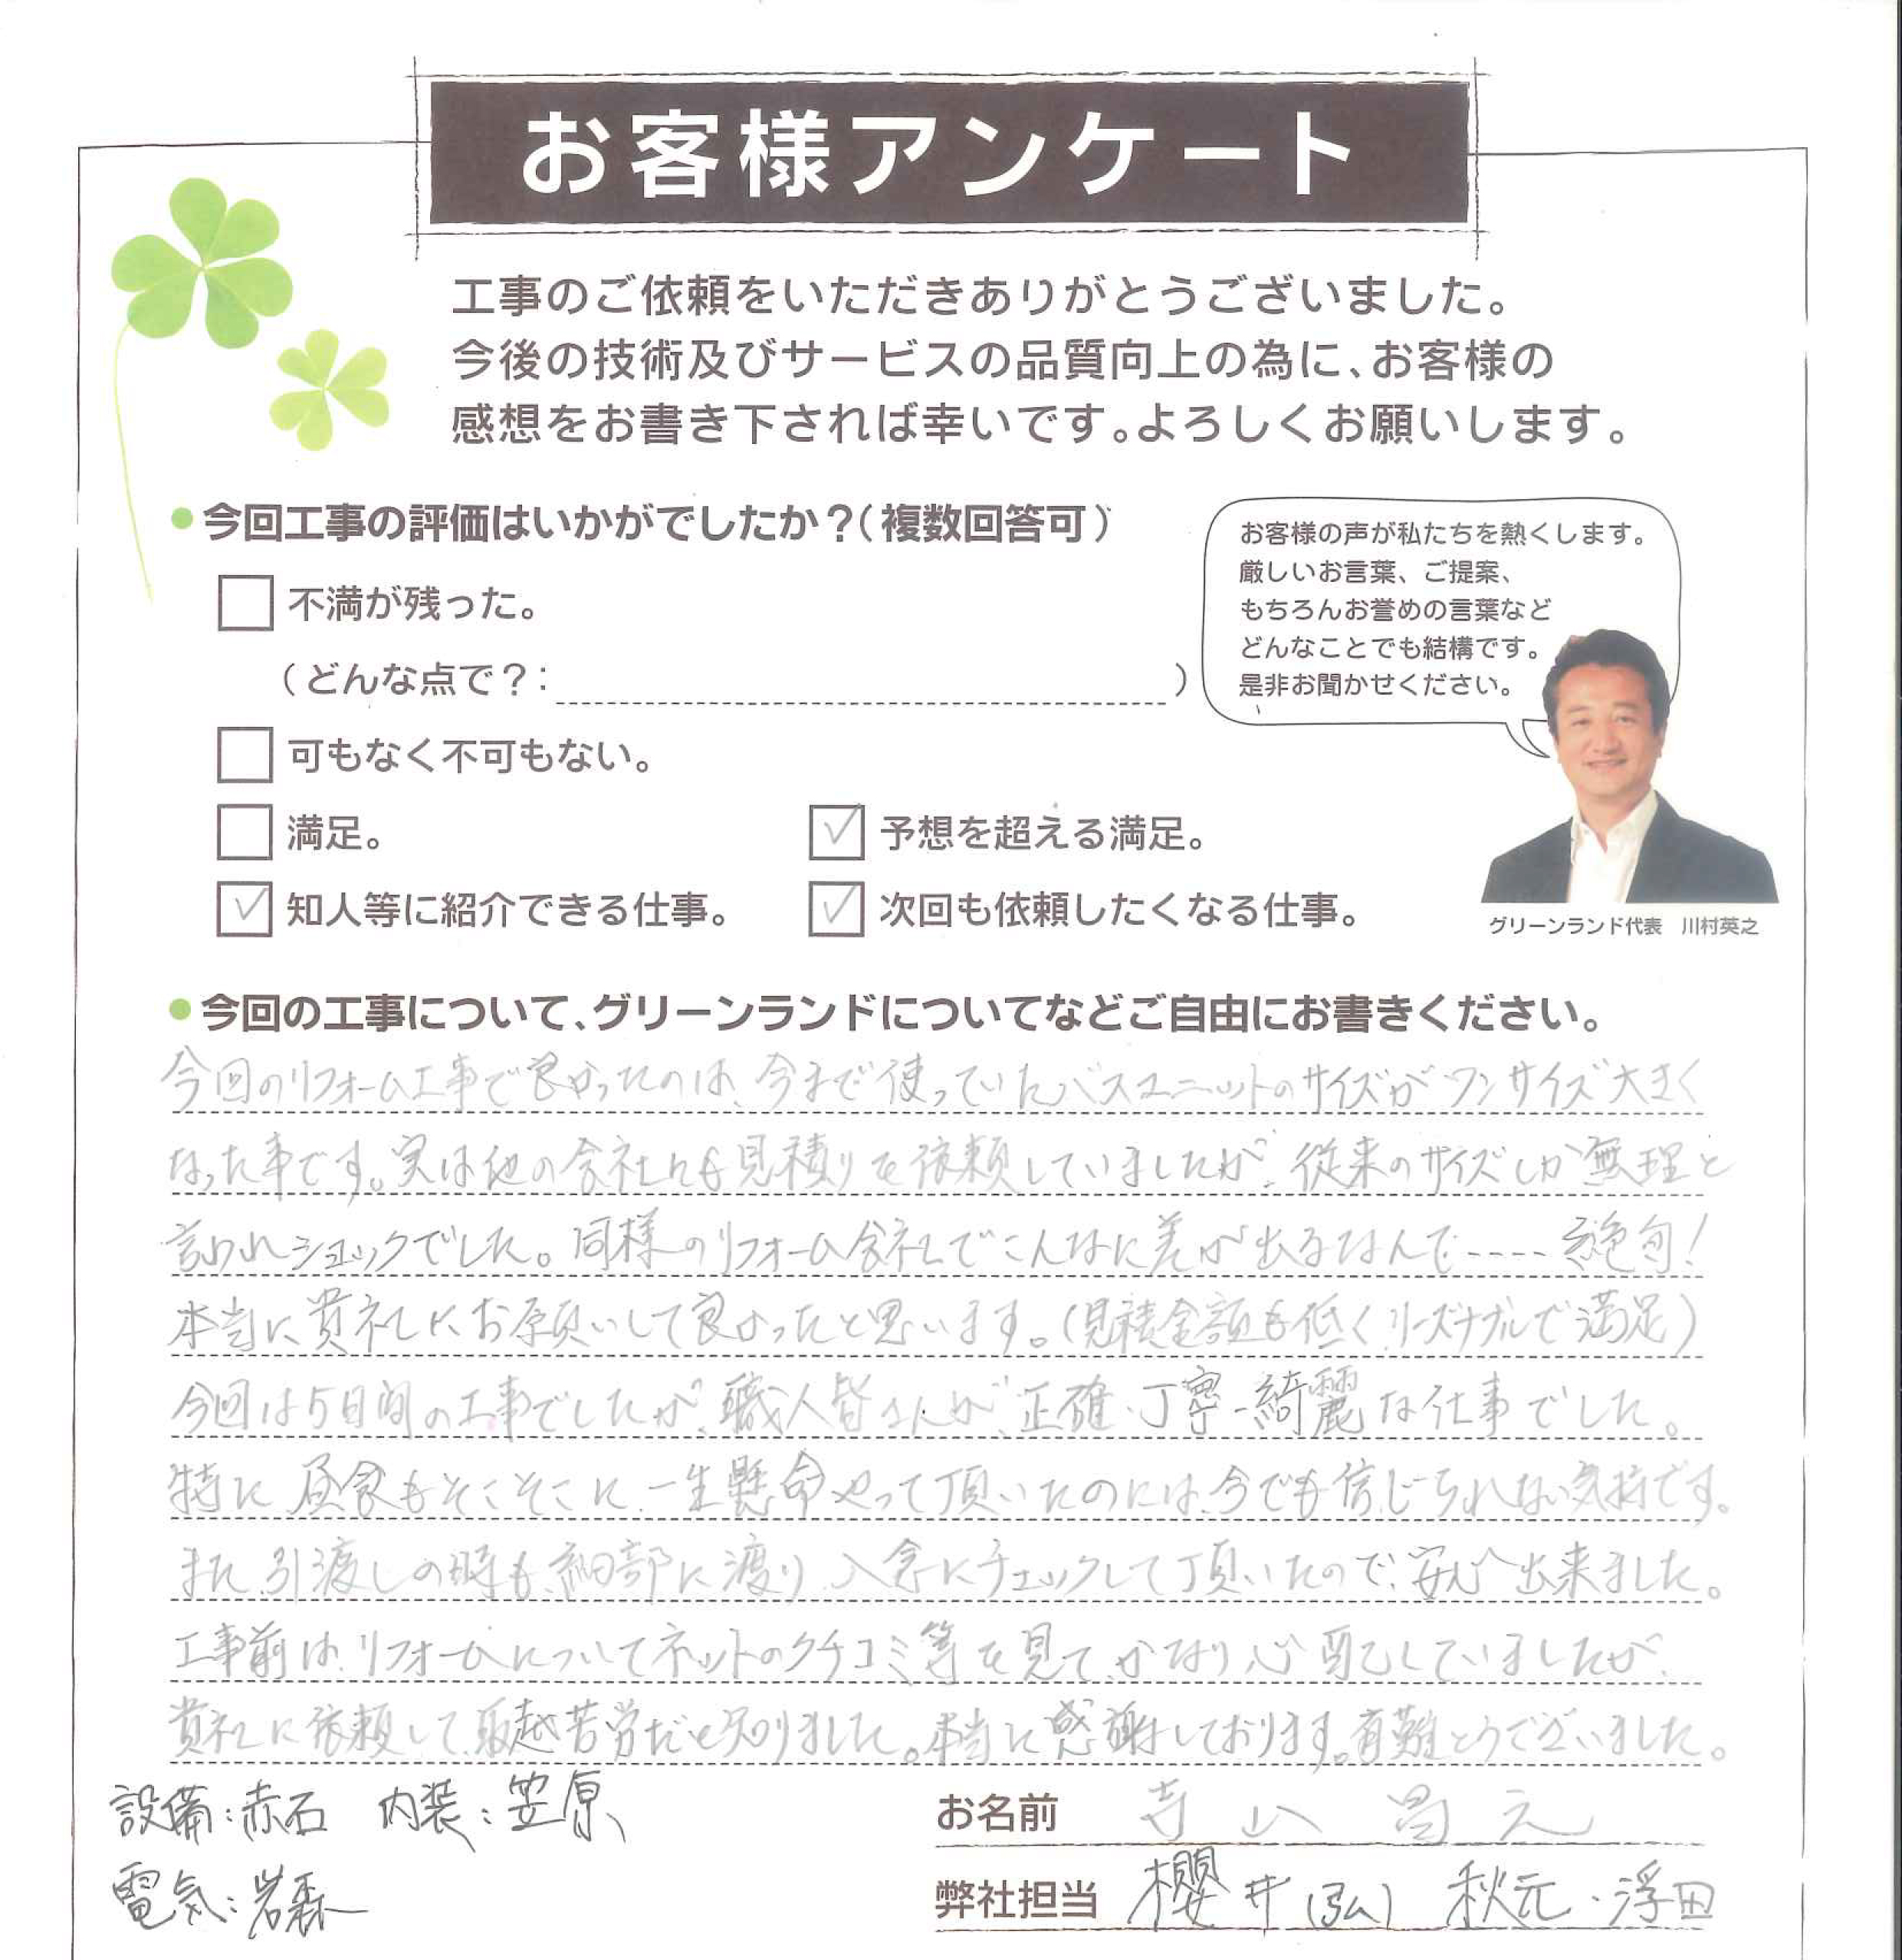 お客様アンケート
工事のご依頼をいただきありがとうございました。
今後の技術及びサービスの品質向上の為に、お客様の
感想をお書き下されば幸いです。よろしくお願いします。
●今回工事の評価はいかがでしたか？(複数回答可)
不満が残った。
(どんな点で？: )
可もなく不可もない。
満足。
✓予想を超える満足。
✓知人等に紹介できる仕事。
✓次回も依頼したくなる仕事。
お客様の声が私たちを熱くします。
厳しいお言葉、ご提案、
もちろんお誉めの言葉など
どんなことでも結構です。
是非お聞かせください。
グリーンランド代表 川村英之
●今回の工事について、グリーンランドについてなどご自由にお書きください。
今回のリフォーム工事で良かったのは、今まで使っていたバスユニットのサイズがワンサイズ大きく
なった事です。実は他の会社にも見積りを依頼していましたが、従来のサイズしか無理と
言われショックでした。同様のリフォーム会社でこんなに差が出るなんて----絶句!
本当に貴社にお願いして良かったと思います。(見積金額も低くリーズナブルで満足)
今回は5日間の工事でしたが、職人皆さんが、正確・丁寧・綺麗な仕事でした。
特に昼食もそこそこに、一生懸命やって頂いたのには、今でも信じられない気持です。
また、引渡しの時も、細部に渡り、入念にチェックして頂いたので、安心出来ました。
工事前は、リフォームについてネットのクチコミ等を見て、かなり心配していましたが、
貴社に依頼して、取越苦労だと知りました。本当に感謝しております。有難とうございました。
設備:赤石 内装:笠原
電気:岩森
お名前 寺山 昌元
弊社担当 櫻井(弘) 秋元・浮田